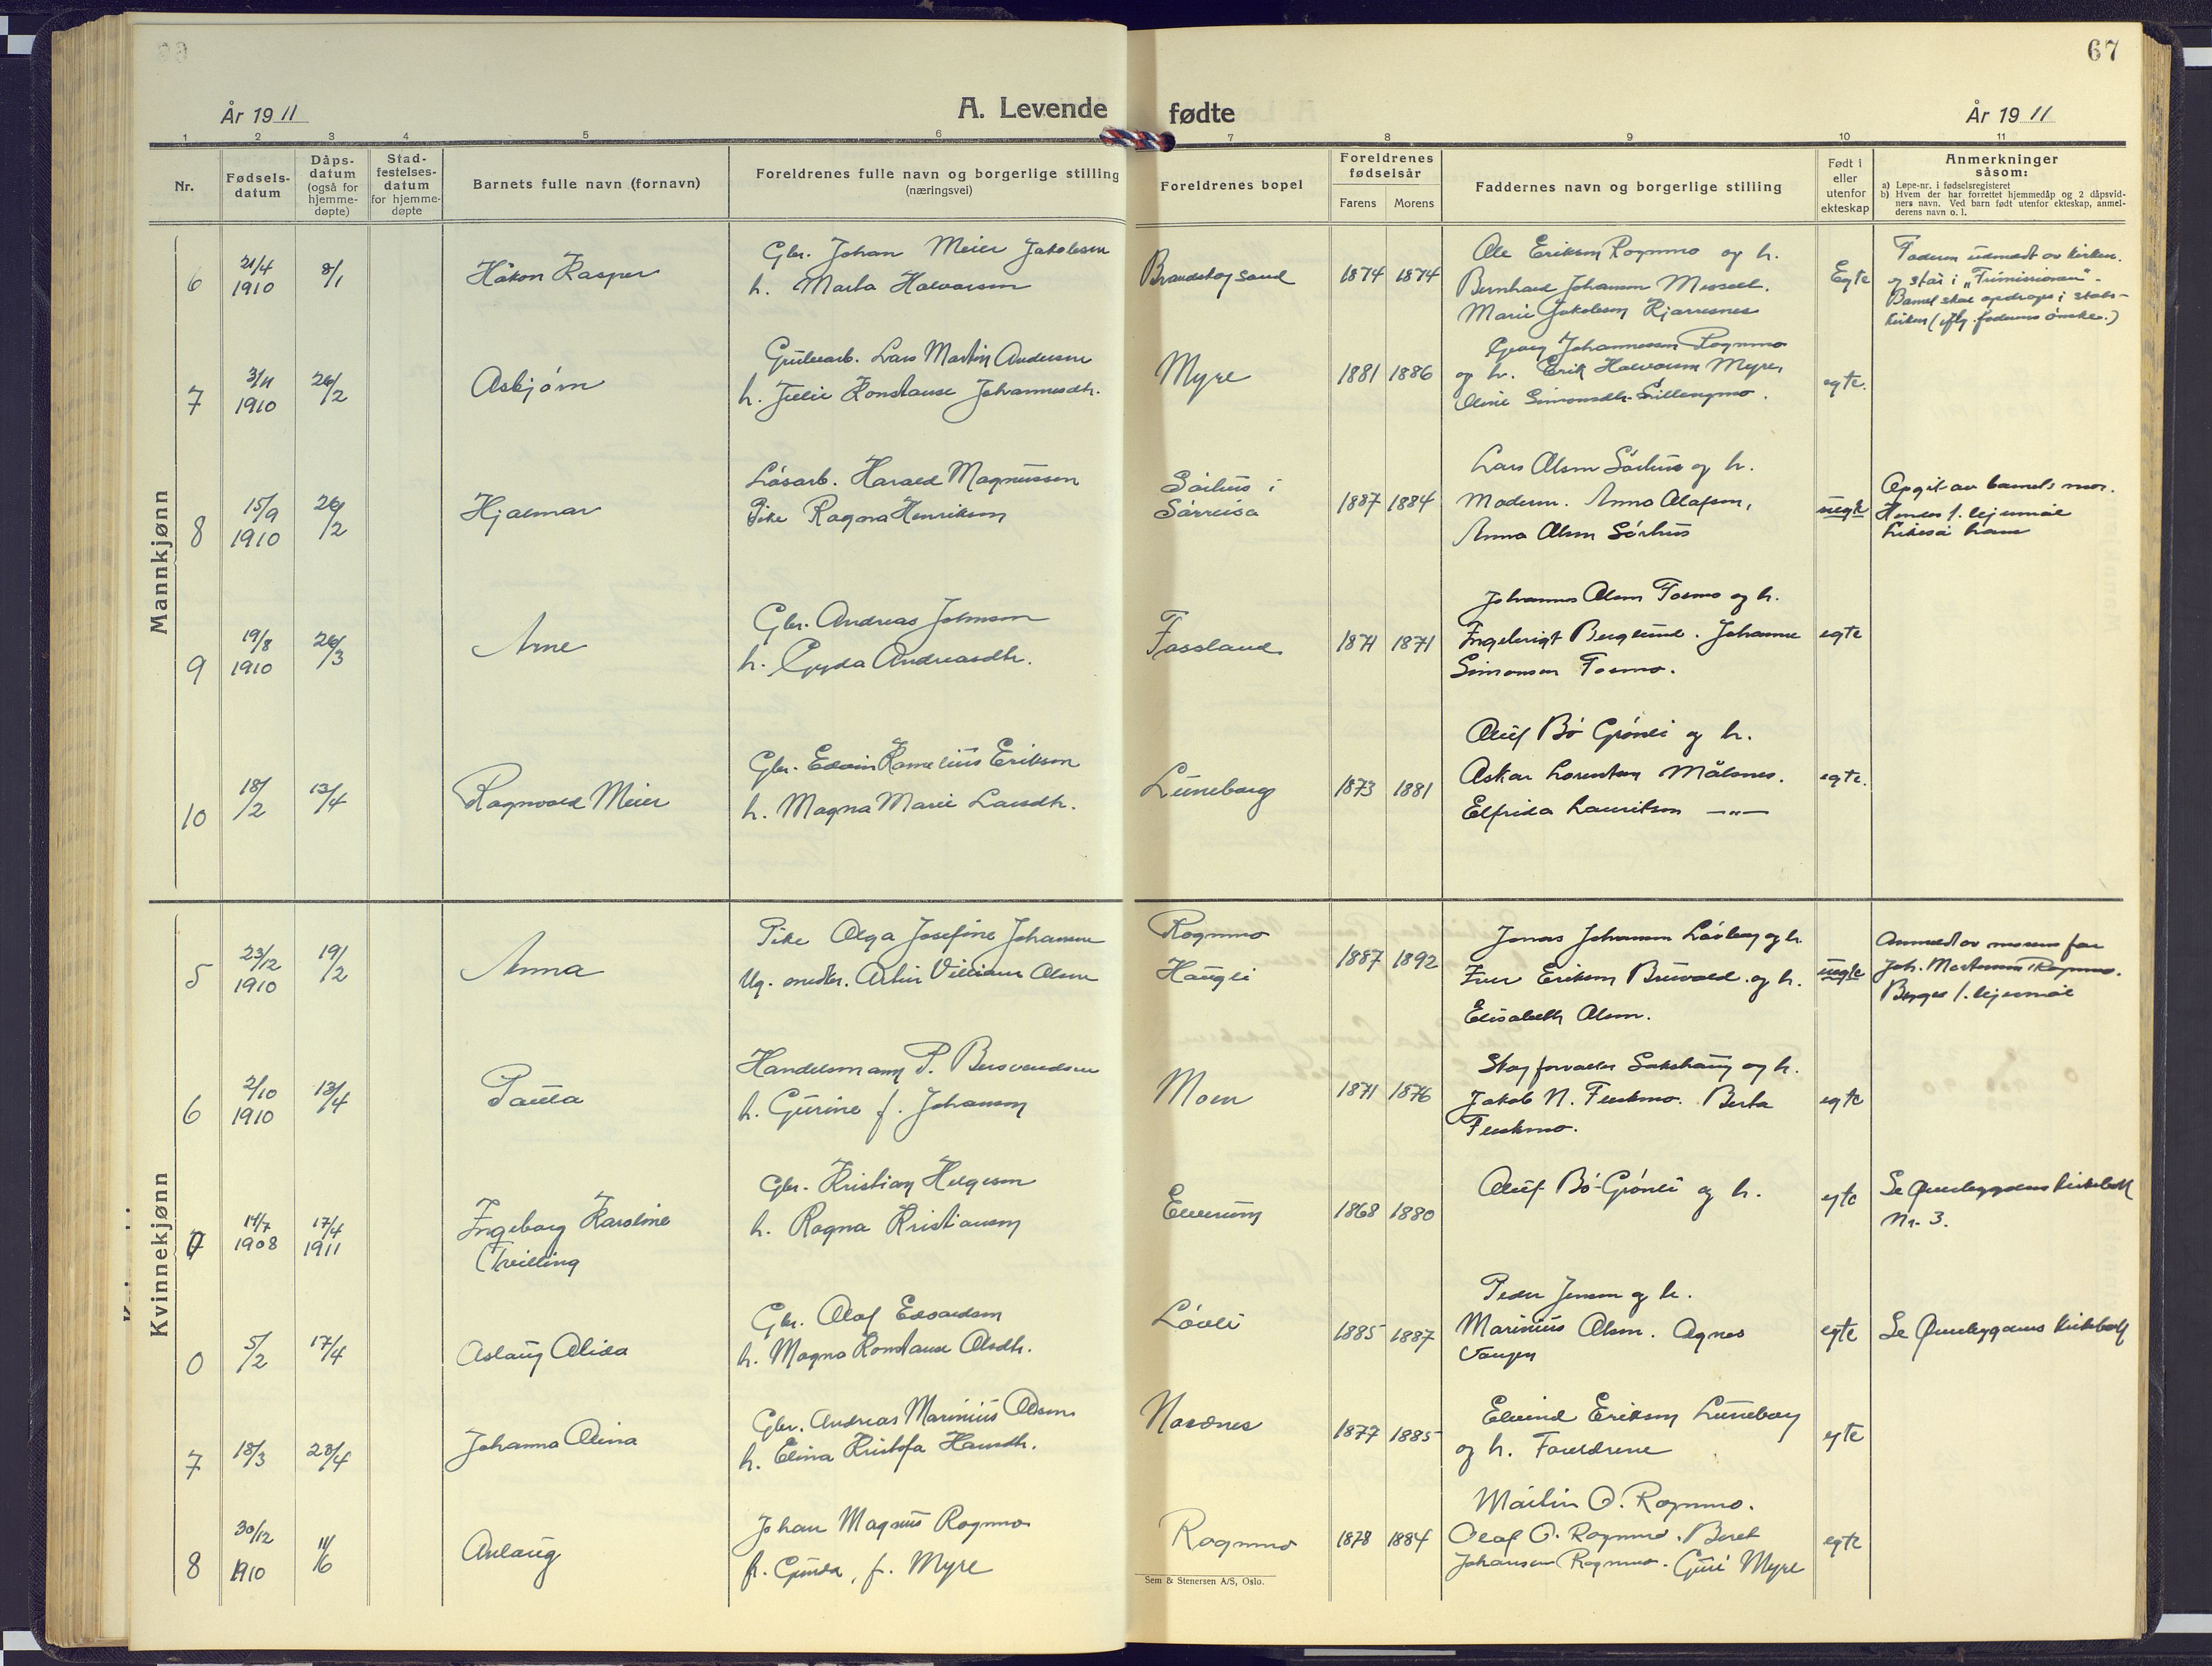 67
År 1911
A. Levende fødte
År 1911
1 2 3 4 5 6 7 8 9 10 11
Nr.
Fødsels-
datum
Dåps-
datum
(også for
hjemme-
døpte)
Stad-
festelses-
datum
for hjemme-
døpte
Barnets fulle navn (fornavn)
Foreldrenes fulle navn og borgerlige stilling
(næringsvei)
Foreldrenes bopel
Foreldrenes
fødselsår
Farens Morens
Faddernes navn og borgerlige stilling
Født i
eller
utenfor
ekteskap
Anmerkninger
såsom:
a) Løpe-nr. i fødselsregisteret
b) Hvem der har forrettet hjemmedåp og 2 dåpsvid-
ners navn. Ved barn født utenfor ekteskap, anmel-
derens navn o. l.
Mannkjønn
6
21/4
1910
8/1
Håkon Kasper
Gbr. Johan Meier Jakobsen
h. Marta Halvorsen
1874 1874
Ole Eriksen Rognmo og h.
Bernhard Johansen
Marie Jakobsen
Egte
og står i
Barnet skal
7
3/11
1910
26/2
Asbjørn
Lars Martin Andersen
h. Julie Konstanse Johannesdtr.
Myre
1881 1886
Georg Johannessen Rognmo
og h. Erik Halvorsen Myre,
Simonsdtr.
egte.
8
15/9
1910
26/2
Hjalmar
Løsarb. Harald Magnussen
Pike Ragna Henriksen
Sørhus i
Sørreisa
1887 1884
Lars Olsen Sørhus og h.
Moderen. Anna Olafsen,
Anna Olsen Sørhus
uegte
Opgit av barnets mor.
Hendes 1. leiermål
Likeså hans
9
19/8
1910
26/3
Arne
Gbr. Andreas Johnsen
h. Gyda Andreasdtr.
Fossland
1871 1871
Johannes Olsen Fosmo og h.
Ingebrigt Berglund. Johanne
Simonsen Fosmo.
egte
10
18/2
13/4
Ragnvald Meier
Gbr. Edvin Kornelius Eriksen
h. Magna Marie Larsdtr.
Luneborg
1873 1881
Oluf Bö Grönli og h.
Askar Lorentsen Målsnes.
Elfrida Lauritsen —"—
egte.
Kvinnekjønn
5
23/12
1910
19/2
Anna
Pike Olga Josefine Johansen
Ug. Artur Villiam Olsen
Rognmo
Haugli
1887 1892
Jonas Johansen Løvberg og h.
Eriksen Brüvold og h.
Elisabeth Olsen.
uegte
Anmeldt av morens far
Joh. Mortensen Rognmo.
Begges 1. leiermål
6
2/10
1910
13/4
Paula
Handelsmann P. Besvendsen
h. Gurine f. Johansen
Moen
1871 1876
Skogforvalter Sakshaug og h.
Jakob N. Berta
egte
7
14/7
1908
17/4
1911
Ingeborg Karoline
(Tvilling
Gbr. Kristian Helgesen
h. Ragna Kristiansen
Elverum
1868 1880
Oluf Bö-Grönli og h.
egte
Se Øverbygdens kirkebok
Nr. 3.
0
5/2
17/4
Aslaug Alida
Gbr. Olaf Edvardsen
h. Magna Konstanse Olsdtr.
Løvli
1885 1887
Peder Jensen og h.
Marinius Olsen. Agnes
Vangen
egte
Se Øverbygdens kirkebok
7
18/3
23/4
Johanna Alina
Gbr. Andreas Marinius Olsen
h. Elina Kristofa Hansdtr.
Nordnes
1877 1885
Eivind Eriksen Luneborg
og h. Foreldrene
egte
8
30/12
1910
11/6
Anlaug
Johan Magnus Rognmo
h. Gunda, f. Myre
Rognmo
1878 1884
Martin O. Rognmo.
Olaf O. Rognmo. Beret
Johansen Rognmo. Guri Myre
egte
Sem & Stenersen A/S, Oslo.